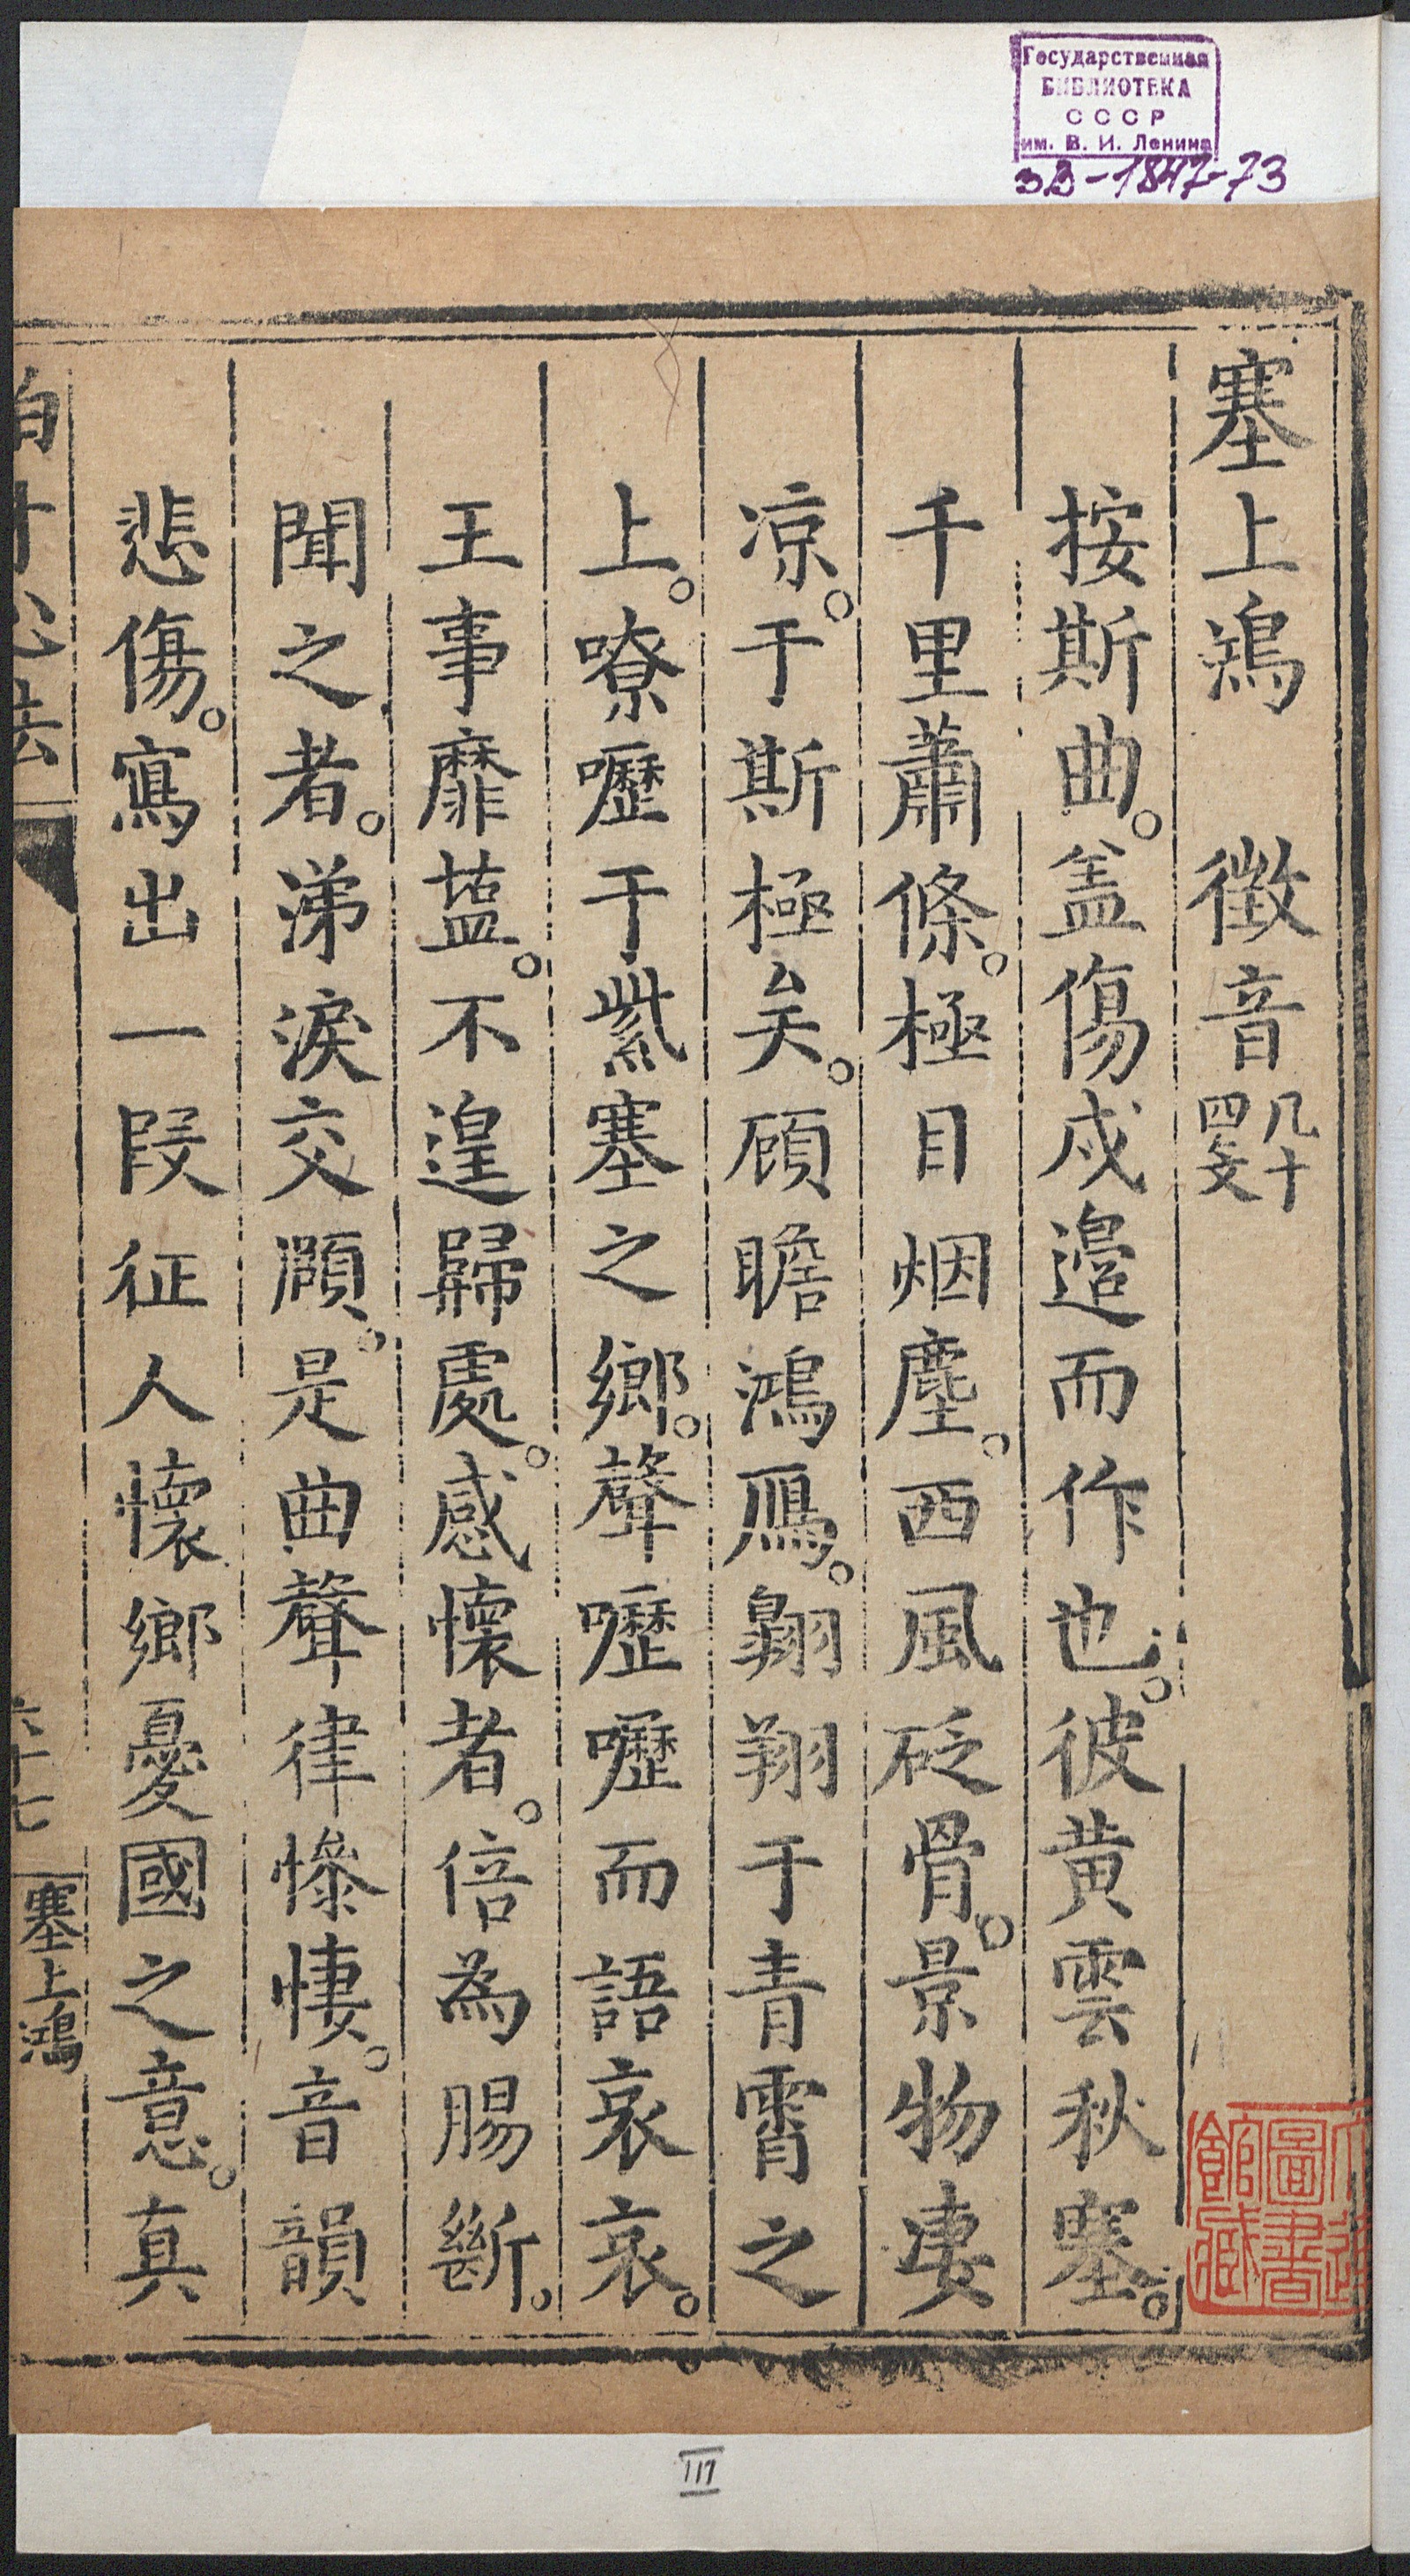 Государственная
БИБЛИОТЕКА
СССР
им. В. И. Ленина
3В-1847-73
塞上鴻 徴音凡十四叚
按斯曲。盖傷戍邉而作也。彼黄雲秋塞。
千里蕭條。極目烟塵。西風砭骨。景物凄
凉。于斯極矣。顧瞻鴻鴈。翺翔于青霄之
上。嘹嚦于紫塞之鄉。聲嚦嚦而語哀哀。
王事靡盬。不遑歸處。感懷者。倍為腸斷。
聞之者。涕淚交灝。是曲聲律慘悽。音韻
悲傷。寫出一段征人懷鄉憂國之意。真
伯牙心法
六十七
塞上鴻
圖書
館藏
III